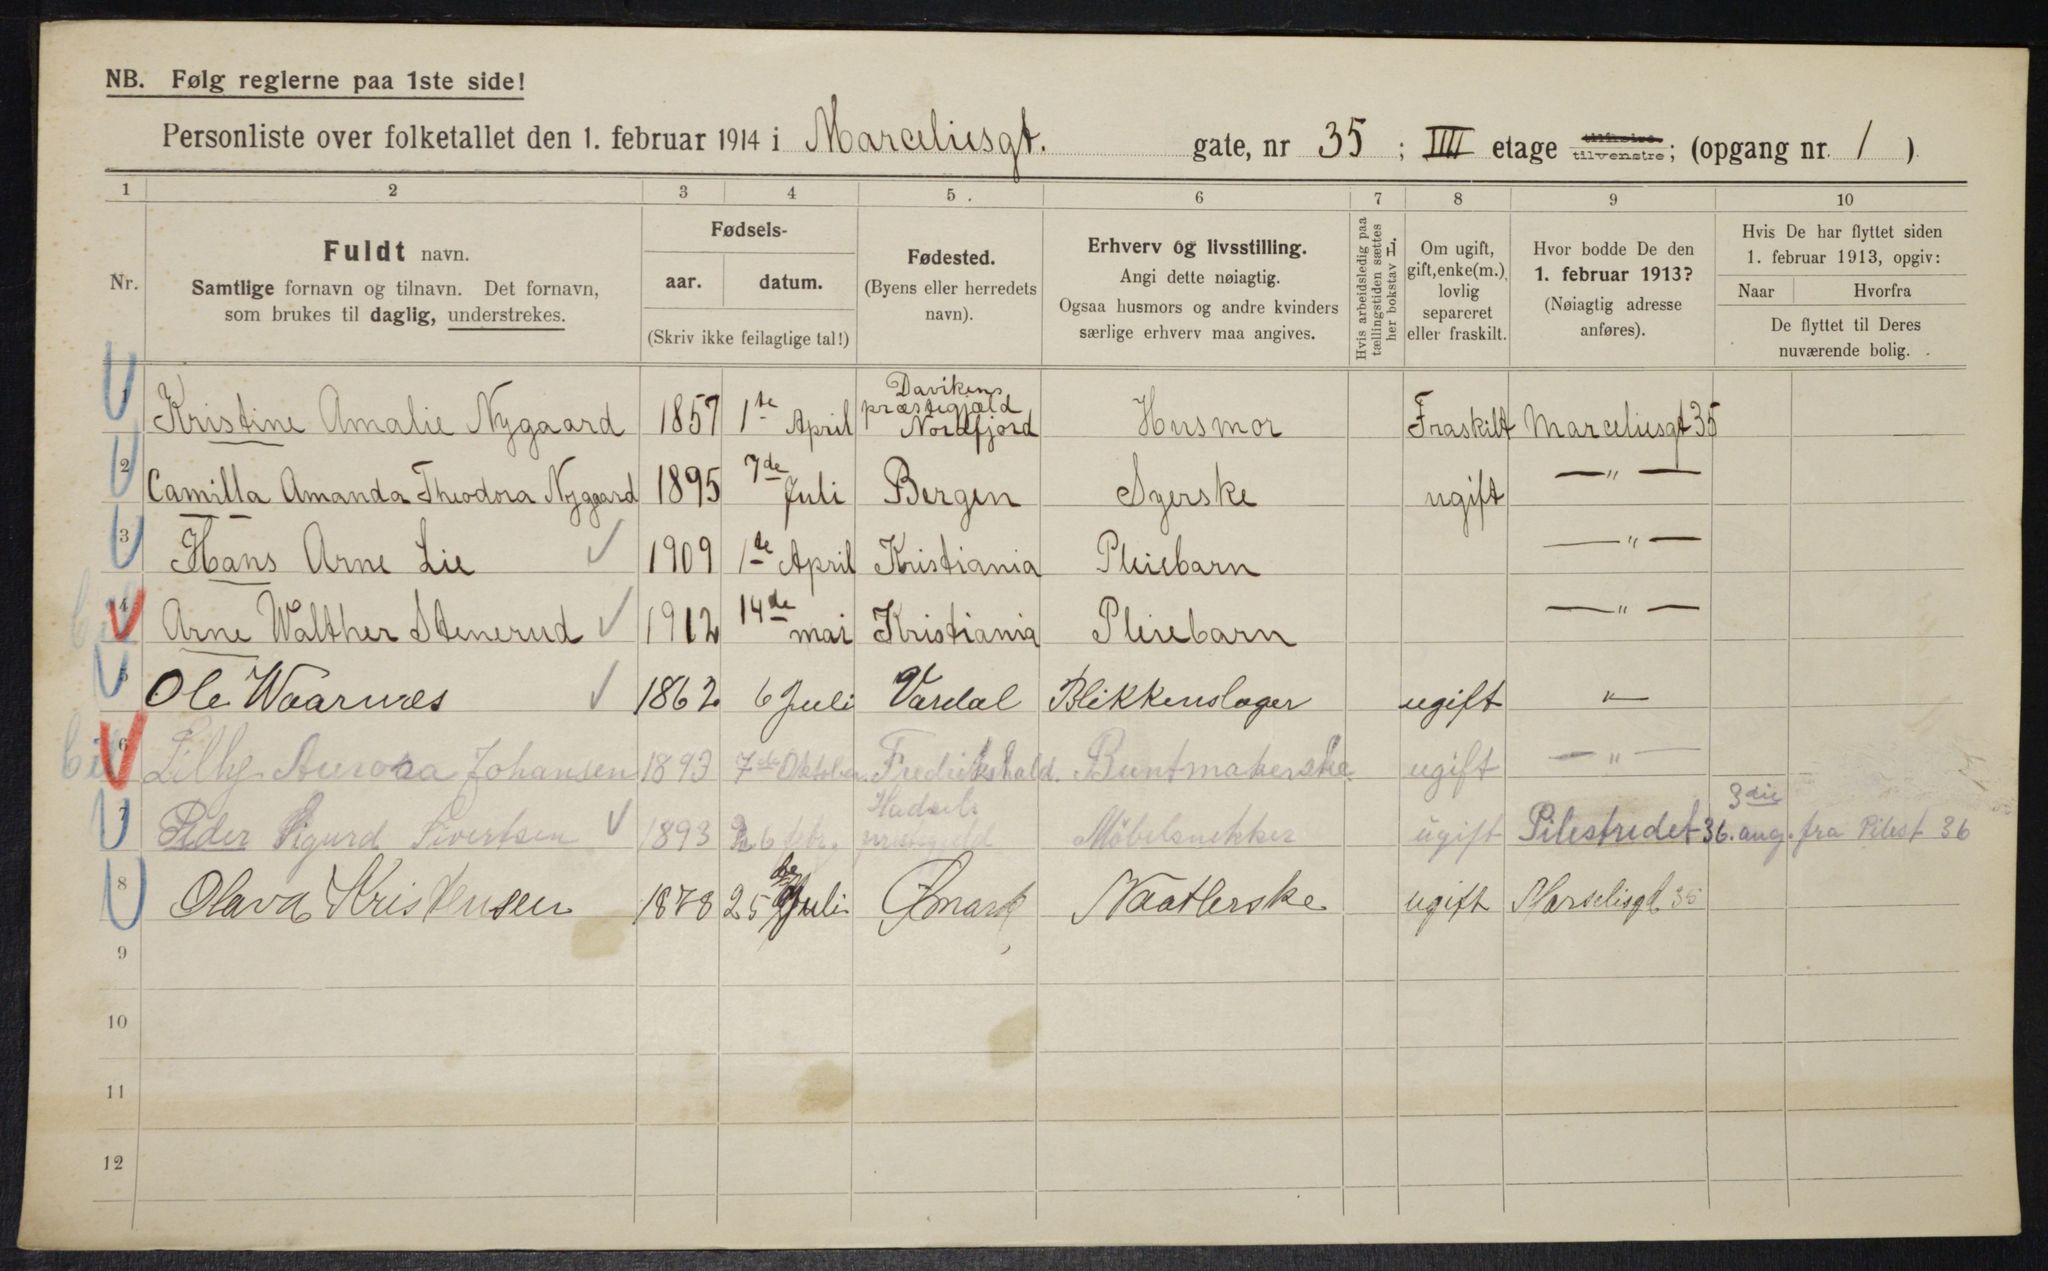 NB. Følg reglerne paa 1ste side!
Personliste over folketallet den 1. februar 1914 i Marceliusgt. gate, nr 35 ; IIII etage tilhøire tilvenstre; (opgang nr. 1 )
1 2 3 4 5. 6 7 8 9 10
Nr.
Fuldt navn.
Samtlige fornavn og tilnavn. Det fornavn,
som brukes til daglig, understrekes.
Fødsels-
aar. datum.
(Skriv ikke feilagtige tal!)
Fødested.
(Byens eller herredets
navn).
Erhverv og livsstilling.
Angi dette nøiagtig.
Ogsaa husmors og andre kvinders
særlige erhverv maa angives.
Hvis arbeidsledig paa
tællingstiden sættes
her bokstav L.
Om ugift,
gift, enke(m.),
lovlig
separeret
eller fraskilt.
Hvor bodde De den
1. februar 1913?
(Nøiagtig adresse
anføres).
Hvis De har flyttet siden
1. februar 1913, opgiv:
Naar Hvorfra
De flyttet til Deres
nuværende bolig.
1 Kristine Amalie Nygaard 1857 1te April Davikens præstegjæld Nordfjord Husmor Fraskilt Marceliusgt 35
2 Camilla Amanda Theodora Nygaard 1895 7de Juli Bergen Syerske ugift — " —
3 Hans Arne Lie ✓ 1909 1te April Kristiania Pleiebarn — " —
4 Arne Walther Stenerud ✓ 1912 14de mai Kristiania Pleiebarn — " —
5 Ole Waarnæs ✓ 1862 6 Juli Vardal Blikkenslager ugift "
6 Lilly Aurora Johansen 1893 7de Oktober. Fredrikshald. Buntmakerske ugift — " —
7 Peder Sigurd Sivertsen ✓ 1893 26 febr. Hadsel prestegjeld Möbelsnekker ugift Pilestredet 36. 3die aug. fra Pilest 36
8 Olava Kristensen 1878 25de Juli Naatlerske ugift Marselisgt 35
9
10
11
12